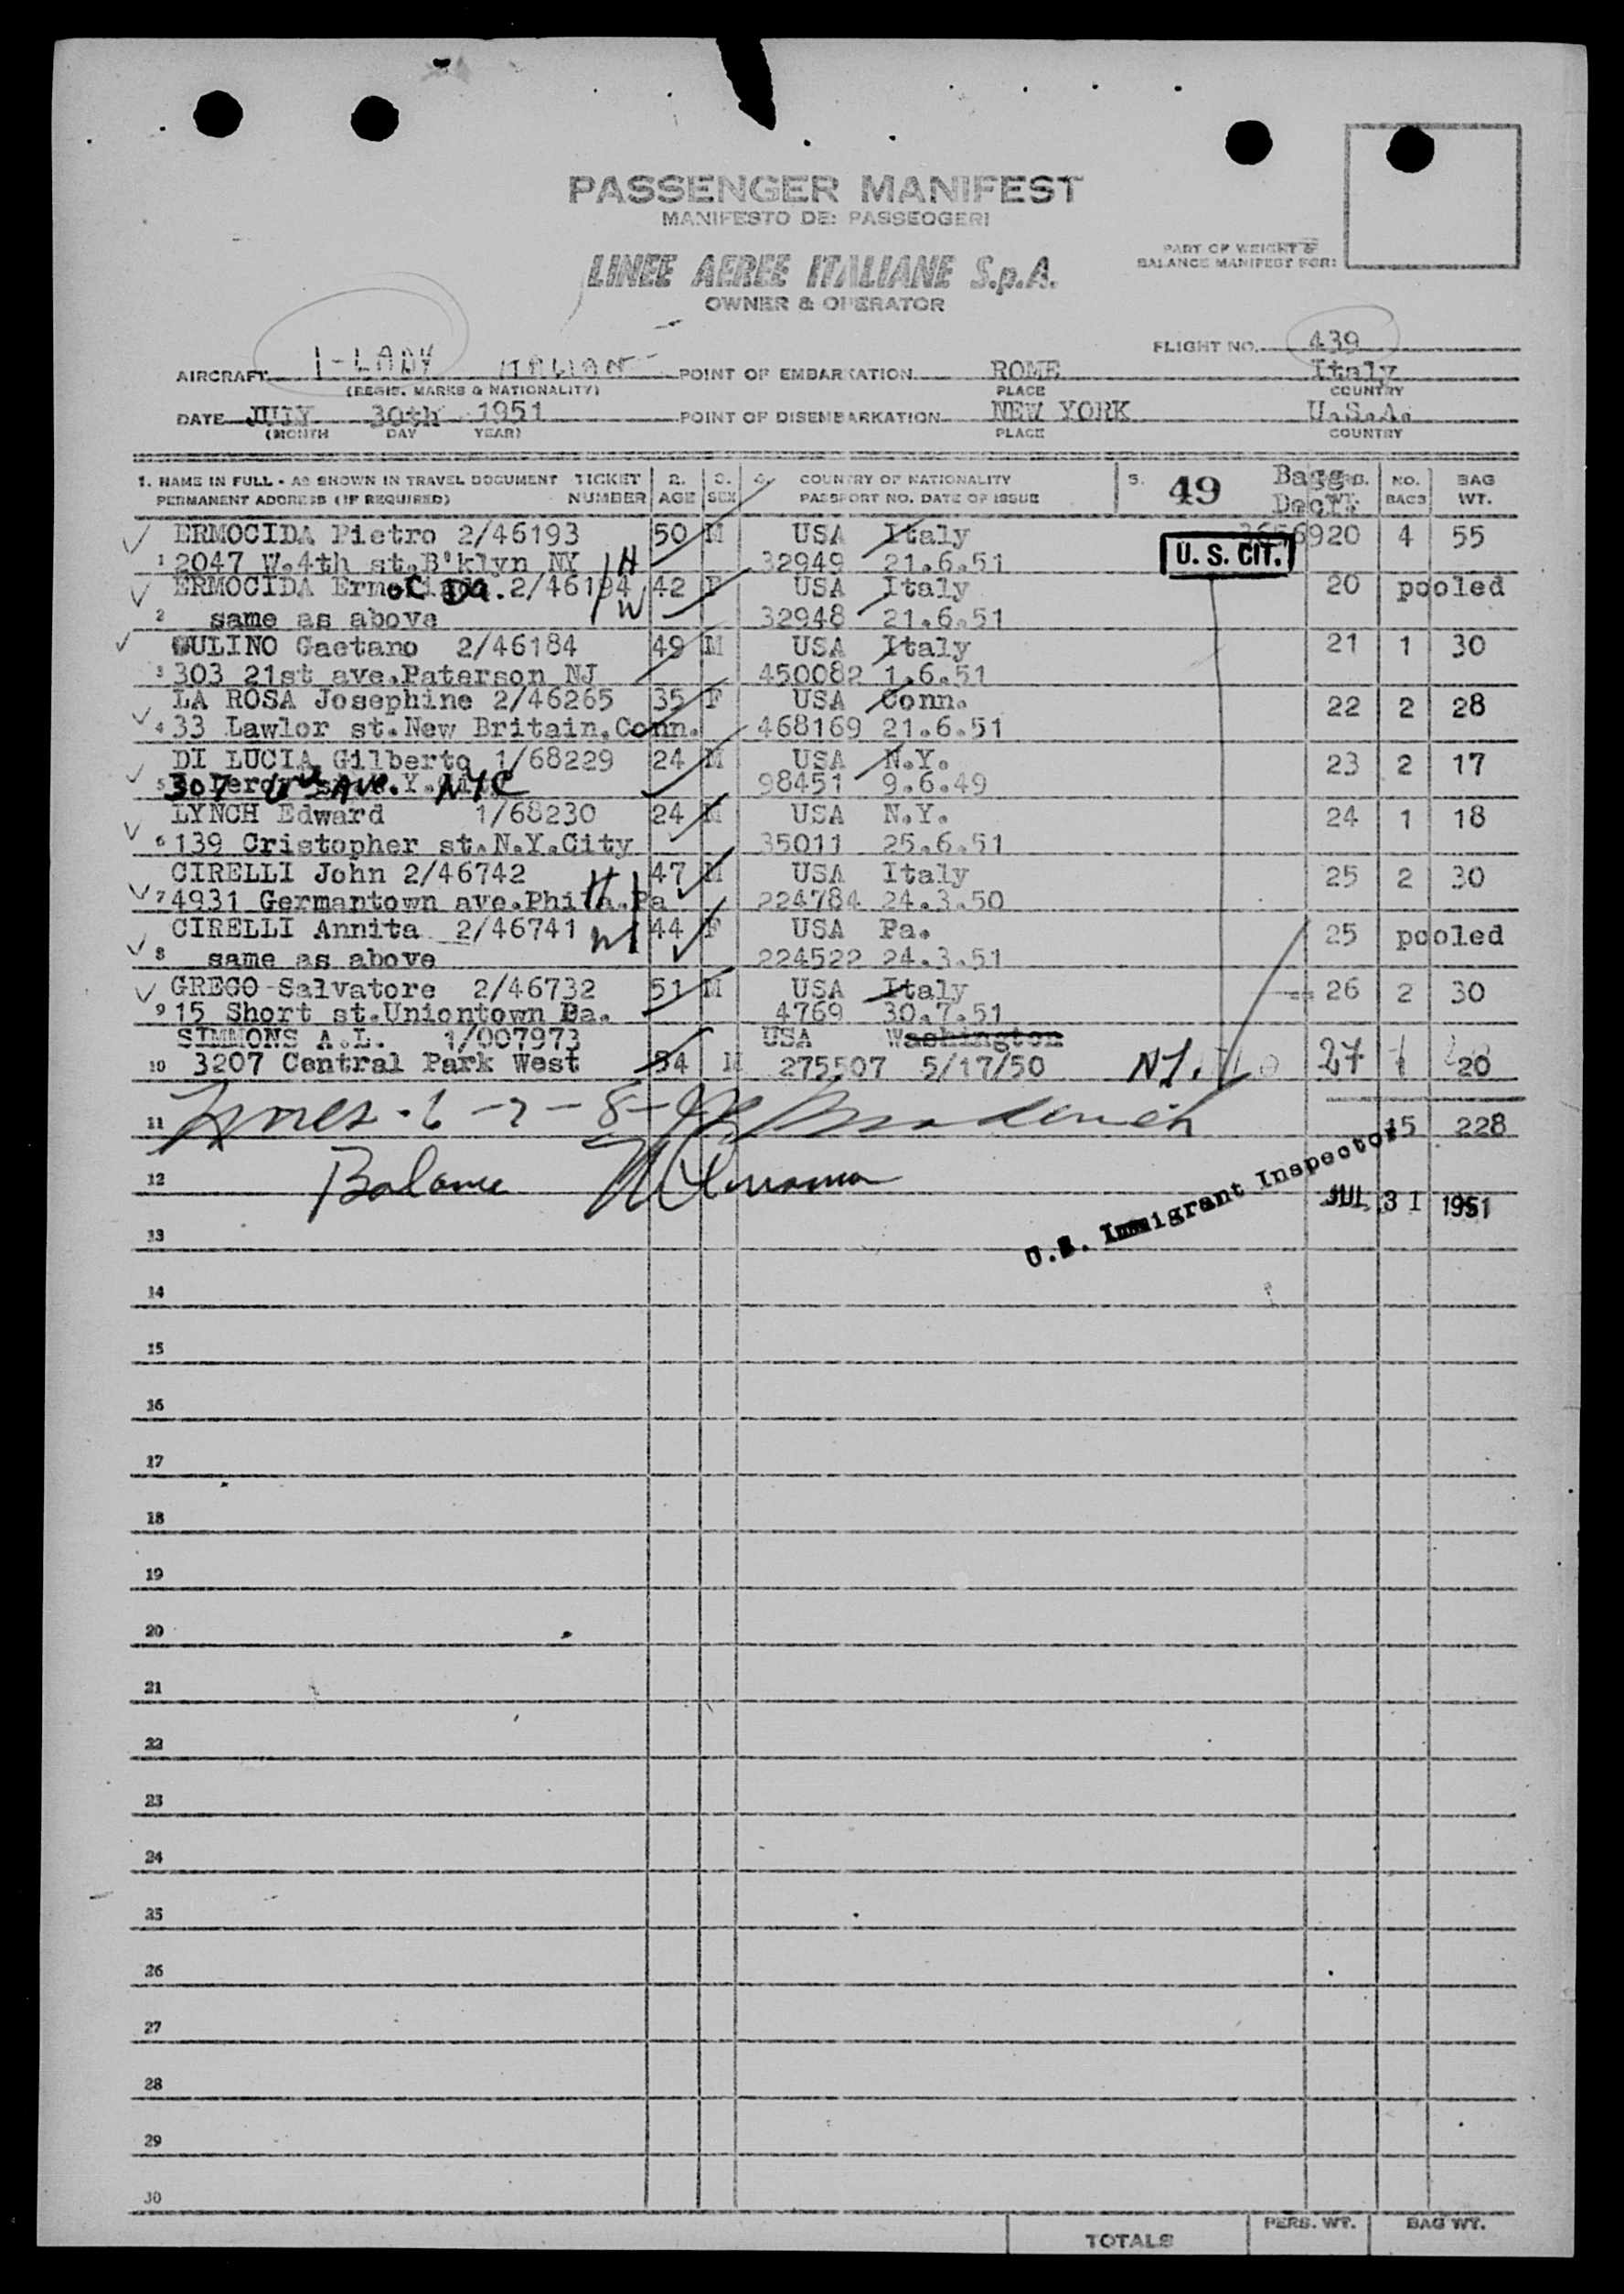 PASSENGER MANIFEST
MANIFESTO DE: PASSEGGERI
LINEE AEREE ITALIANE S.p.A.
OWNER & OPERATOR
PART OF WEIGHT &
BALANCE MANIFEST FOR:
FLIGHT NO. 439
AIRCRAFT I-LADY ITALIAN POINT OF EMBARKATION ROME Italy
(REGIS. MARKS & NATIONALITY) PLACE COUNTRY
DATE JULY 30th 1951 POINT OF DISEMBARKATION NEW YORK U.S.A.
(MONTH DAY YEAR) PLACE COUNTRY
1. NAME IN FULL - AS SHOWN IN TRAVEL DOCUMENT TICKET 2. 3. 4. COUNTRY OF NATIONALITY 5. 49 Bagg. NO. BAG
PERMANENT ADDRESS (IF REQUIRED) NUMBER AGE SEX PASSPORT NO. DATE OF ISSUE Decl. WT. BAGS WT.
ERMOCIDA Pietro 2/46193 50 M USA Italy 3656920 4 55
1 2047 W.4th st.B'klyn NY H 32949 21.6.51 U. S. CIT.
ERMOCIDA 2/46194 42 F USA Italy 20 pooled
2 same as above W 32948 21.6.51
GULINO Gaetano 2/46184 49 M USA Italy 21 1 30
3 303 21st ave.Paterson NJ 450082 1.6.51
LA ROSA Josephine 2/46265 35 F USA Conn. 22 2 28
4 33 Lawlor st.New Britain,Conn. 468169 21.6.51
DI LUCIA Gilberto 1/68229 24 M USA N.Y. 23 2 17
5 307 Ave. NYC 98451 9.6.49
LYNCH Edward 1/68230 24 M USA N.Y. 24 1 18
6 139 Cristopher st.N.Y.City 35011 25.6.51
CIRELLI John 2/46742 47 M USA Italy 25 2 30
7 4931 Germantown ave.Phila.Pa H 224784 24.3.50
CIRELLI Annita 2/46741 W 44 F USA Pa. 25 pooled
8 same as above 224522 24.3.51
GRECO Salvatore 2/46732 51 M USA Italy 26 2 30
9 15 Short st.Uniontown Pa. 4769 30.7.51
SIMMONS A.L. 1/007973 USA Washington
10 3207 Central Park West 54 M 275507 5/17/50 27 1 20
11 Lines - 6 - 7 - 8 - 15 228
12 Balance
U.S. Immigrant Inspector
JUL 31 1951
13
14
15
16
17
18
19
20
21
22
23
24
25
26
27
28
29
30
TOTALS PERS. WT. BAG WT.